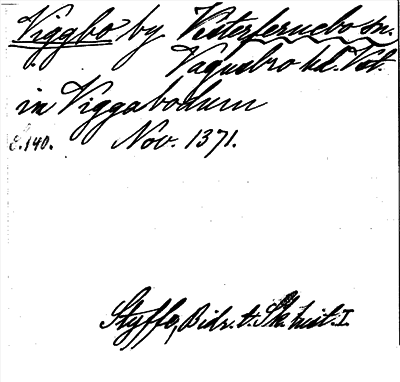 Viggbo by Vesterfernebo sn.
Vagnsbro hd. Vstl.
in Viggabodum
c. 140. Nov. 1371.
Styffe, Bidr. t. Sk. hist. I.